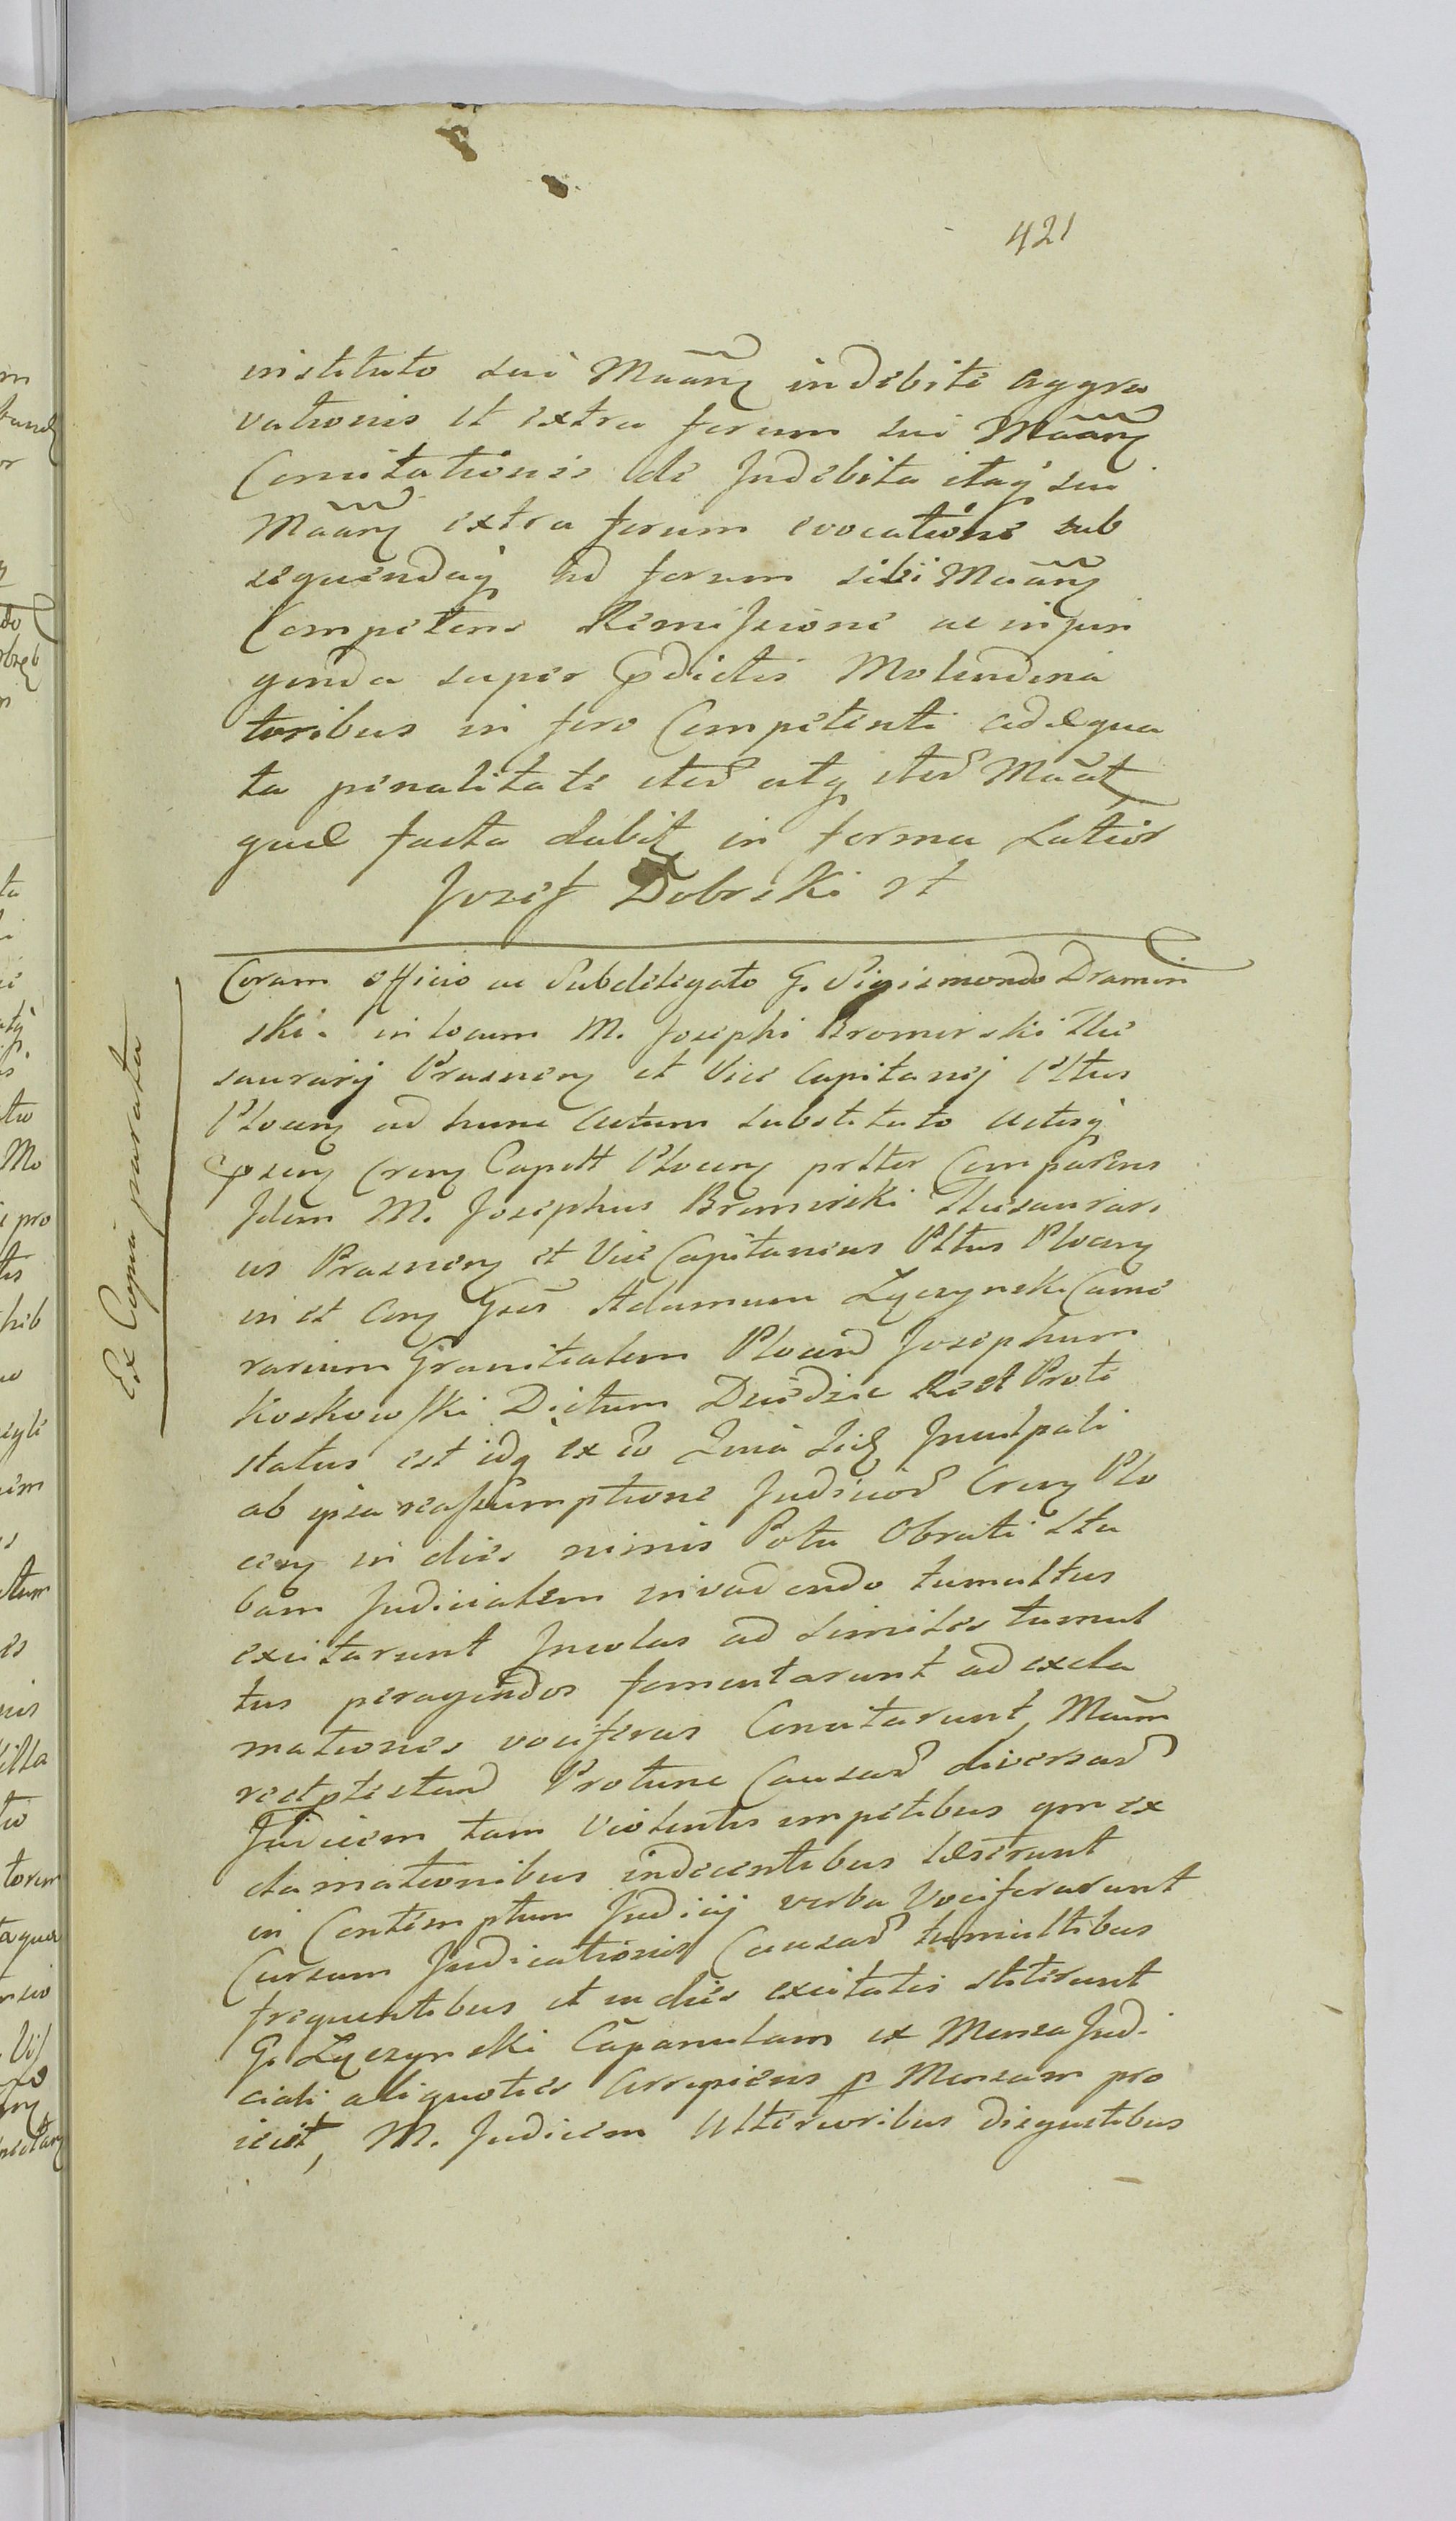 421
instituto sui Mãanz indebite aggra
vationis et extra forum sui Mãanz
Comitationis de Indebita itaq sui
Mãanz extra forum evocatione sub
sequendaq ad forum sibi Mãanz
Competens Remissione ac injun
genda super pdictis Molendina
toribus in foro Competenti adæqua
ta penalitate
quæ facta dabit in forma Latior
Jozef Dobrski
Coram officio ac Subdelegato G. Sigismondo Dramin
ski in locum M. Josephi Bromirski The
saurarij Prasnenz et Vice Capitanej Pltus
Plocenz ad hunc actum substituto actisq
Capett Plocenz Comparens
Idem M. Josephus Bromirski Thesaurari
us Prasnenz et Vice Capitaneus Pltus Plocenz
in et Adamum Lączynski Came
rarium Granitialem Josephum
Koskowski Dictum Dziedzic Rest Prote
status est idq ex eo
ab ipsa reassumptione Judicior Plo
cenz in dies nimis Potu Obruti Stu
bam Judicialem invadendo tumultus
excitarunt Incolas ad similes tumul
tus peragendos fomentarunt ad excla
mationes vociferas Mãum
Protunc Causar diversar
Judicem tam Violentis impetibus qm ex
clamationibus indecentibus læserunt
in Contemptum Judicij verba Vociferarunt
Cursum Judicationis Causar tumultibus
frequentibus et in dies excitatis stiterunt
G. Lączynski Campanulam ex Mensa Judi
ciali aliquoties Arripiens p Mensam pro
iecit, M. Judicem Ulterioribus disgustibus
Ex Copia parata